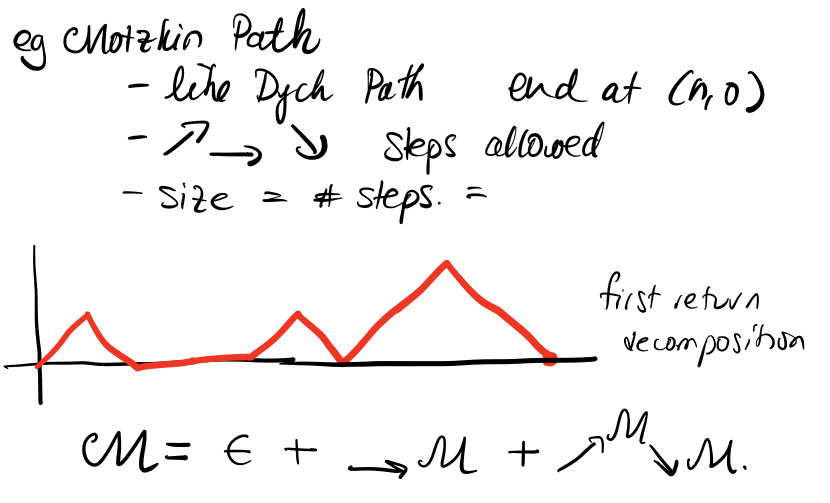 eg Motzkin Path
- like Dych Path end at (n,0)
- ↗ → ↘ steps allowed
- size = # steps. =
first return
decomposition
M = ϵ + → M + ↗ M ↘ M.